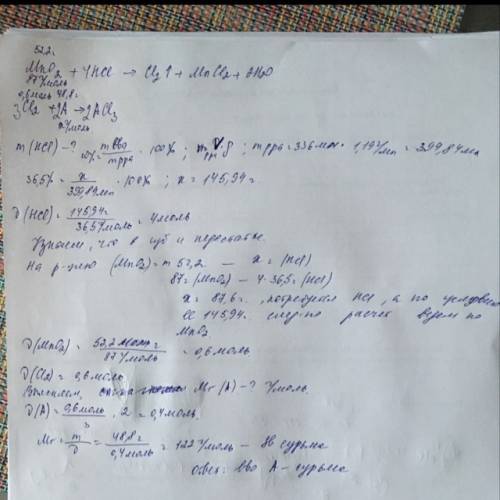 52,2г
MnO2 + 4HCl → Cl2↑ + MnCl2 + 2H2O
87 г/моль
0,6 моль 48,8г
3Cl2 + 2A → 2ACl3
m (HCl) - ? w% = mвва / mppa · 100% ; mppa = V·ρ ; mppa = 336 мл · 1,19 г/мл = 399,84 мл
36,5% = x / 399,84 мл · 100% ; x = 145,94 г.
ν(HCl) = 145,94г / 36,5 г/моль = 4 моль
Узнаем, что в изб и недостатке.
На р-цию (MnO2) = m 52,2 — x = (HCl)
87г (MnO2) — 4·36,5г (HCl)
x = 87,6 г. потребуется HCl, а по условию
ее 145,94. след-но расчет ведем по
MnO2
ν(MnO2) = 52,2 г / 87 г/моль = 0,6 моль
ν(Cl2) = 0,6 моль
Mr (A) - ? г/моль.
ν(A) = 0,6 моль / 3 · 2 = 0,4 моль
Mr = m / ν = 48,8 г / 0,4 моль = 122 г/моль — Sb сурьма
ответ: вво A - сурьма